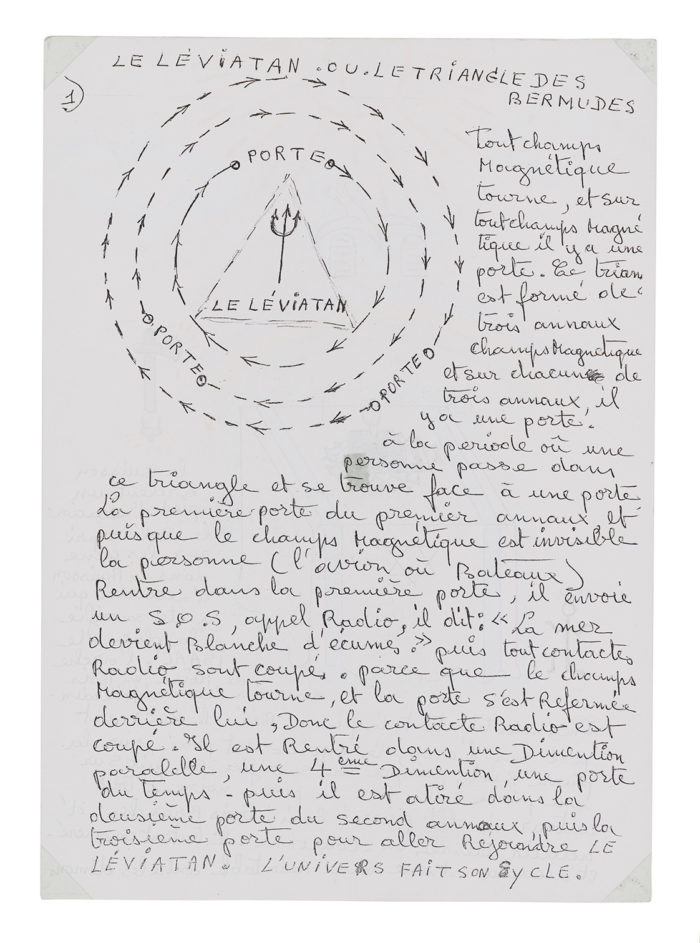 LE LÉVIATAN . OU . LE TRIANGLE DES
BERMUDES
1)
PORTE
LE LÉVIATAN
PORTE
PORTE
tout champs
Magnétique
tourne, et sur
tout champs Magné
tique il y a une
porte. Ce trian
est formé de
trois annaux
champs Magnetique
et sur chacun de
trois annaux, il
y a une porte.
à la periode où une
personne passe dans
ce triangle et se trouve face à une porte
La première porte du premier annaux, et
puisque le champs Magnétique est invisible
la personne (l'avion où Bateaux)
Rentre dans la première porte, il envoie
un S.O.S, appel Radio, il dit: « La mer
devient Blanche d'écumes. » puis tout contactes
Radio sont coupés. parce que le champs
Magnétique tourne, et la porte s'est Refermée
derrière lui, Donc le contacte Radio est
coupé. Il est Rentré dans une Dimention
paralelle, une 4ème Dimention, une porte
du temps - puis il est atiré dans la
deusième porte du second annaux, puis la
troisième porte pour aller Rejoindre LE
LÉVIATAN. L'UNIVERS FAIT SON SYCLE.